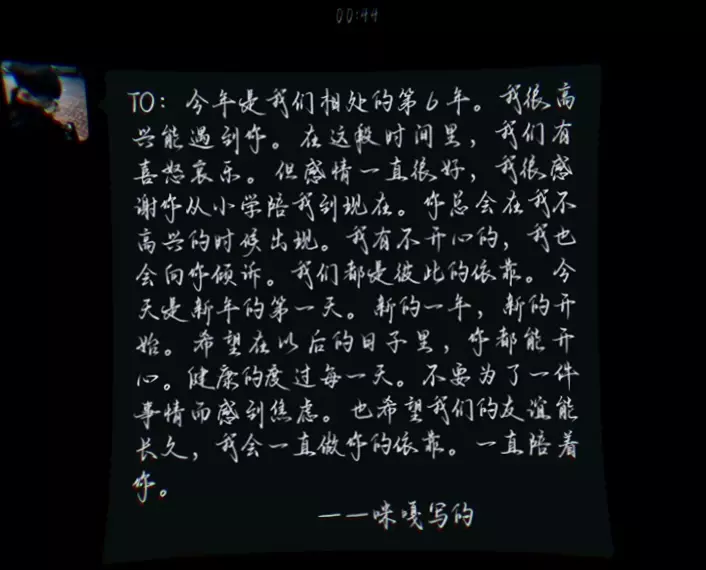 00:44
TO：今年是我们相处的第6年。我很高
兴能遇到你。在这段时间里，我们有
喜怒哀乐。但感情一直很好，我很感
谢你从小学陪我到现在。你总会在我不
高兴的时候出现。我有不开心的，我也
会向你倾诉。我们都是彼此的依靠。今
天是新年的第一天。新的一年，新的开
始。希望在以后的日子里，你都能开
心。健康的度过每一天。不要为了一件
事情而感到焦虑。也希望我们的友谊能
长久，我会一直做你的依靠。一直陪着
你。
——咪嘎写的